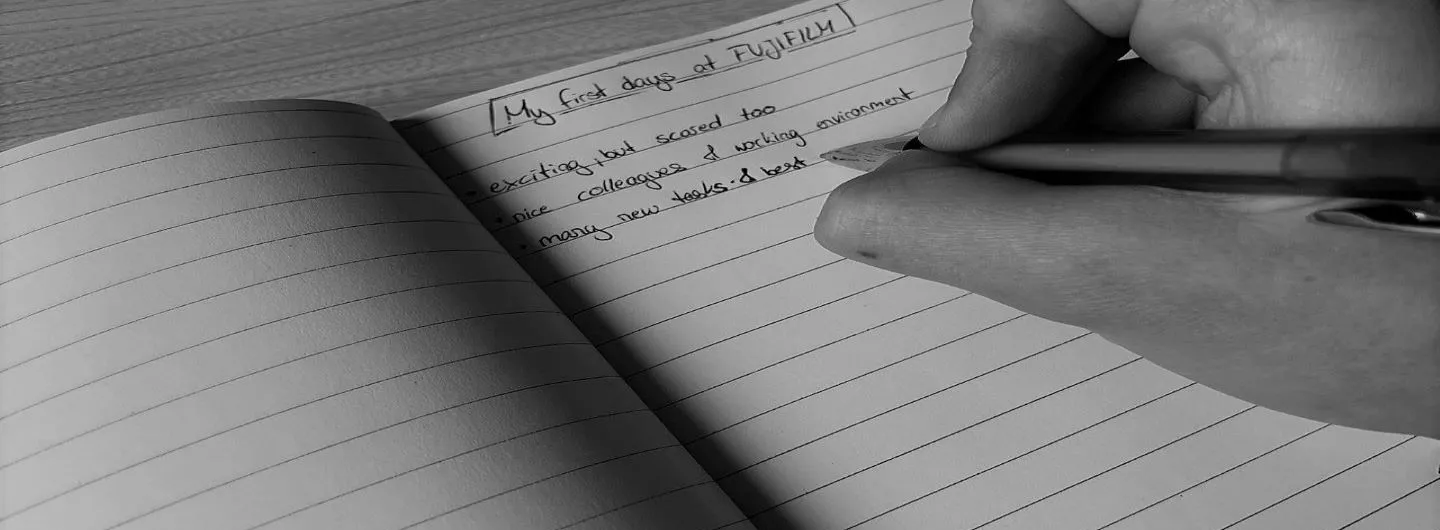 My first days at FUJIFILM
• exciting, but scared too
• nice colleagues & working environment
• many new tasks & best